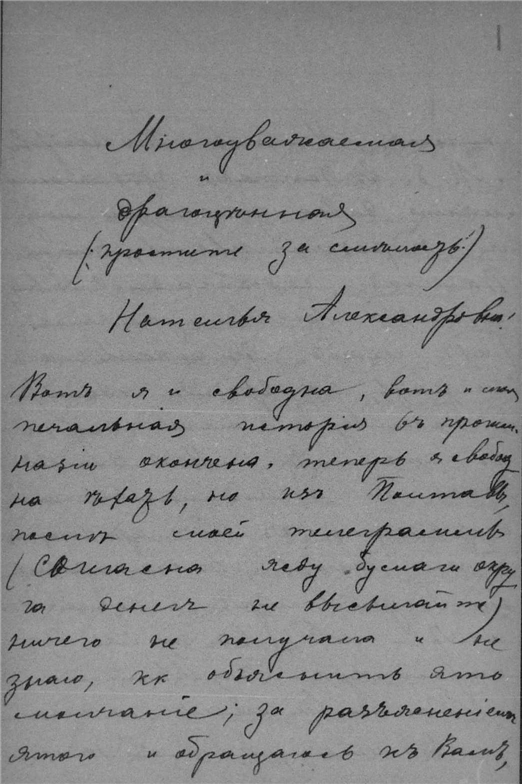 Многоуважаемая
и
драгоцѣнная
(: простите за смѣлость :)
Наталья Александровна!
Вотъ я и свободна, вотъ и моя
печальная исторія въ прогим-
назіи окончена, теперь я свобод
на ѣхать, но изъ Полтавы,
послѣ моей телеграммы
(Согласна жду бумаги окру
га денегъ не высылайте)
ничего не получала и не
знаю, кк объяснить это
молчаніе; за разъясненіемъ
этого и обращаюсь къ Вамъ,